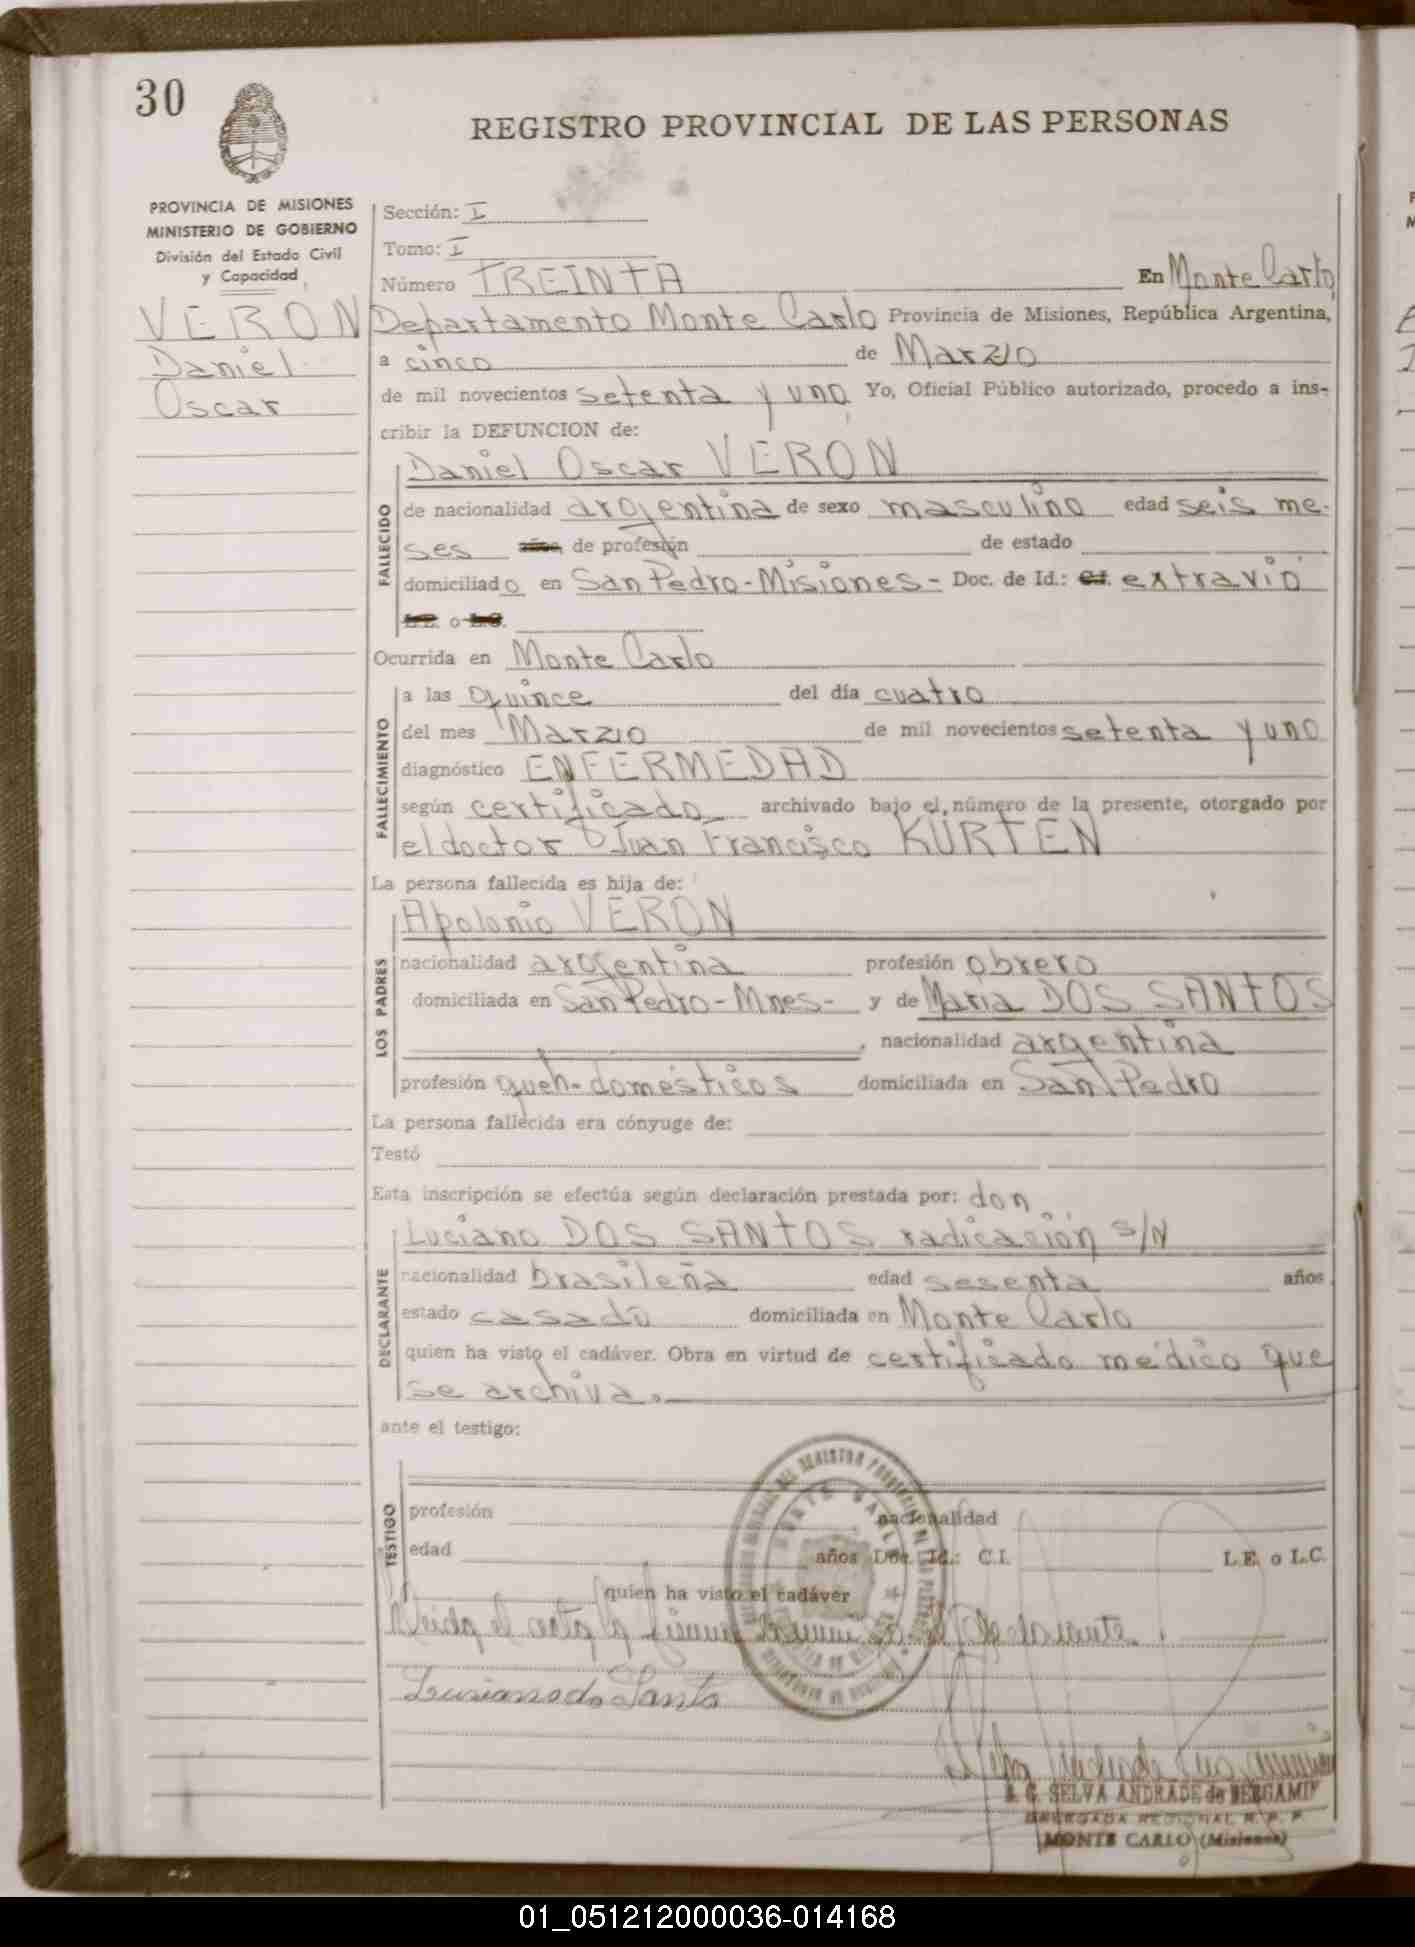 30
REGISTRO PROVINCIAL DE LAS PERSONAS
PROVINCIA DE MISIONES
MINISTERIO DE GOBIERNO
División del Estado Civil
y Capacidad
VERON
Daniel
Oscar
Sección: I
Tomo: I
Número TREINTA En Monte Carlo
Departamento Monte Carlo Provincia de Misiones, República Argentina,
a cinco de Marzo
de mil novecientos setenta y uno Yo, Oficial Público autorizado, procedo a ins-
cribir la DEFUNCION de:
FALLECIDO
Daniel Oscar VERON
de nacionalidad argentina de sexo masculino edad seis me-
ses años, de profesión de estado
domiciliado en San Pedro-Misiones- Doc. de Id.: extravió
o
Ocurrida en Monte Carlo
FALLECIMIENTO
a las quince del día cuatro
del mes Marzo de mil novecientos setenta y uno
diagnóstico ENFERMEDAD
según certificado archivado bajo el número de la presente, otorgado por
el doctor Juan Francisco KÜRTEN
La persona fallecida es hija de:
LOS PADRES
Apolonio VERON
nacionalidad argentina profesión obrero
domiciliada en San Pedro-Mnes- y de Maria DOS SANTOS
, nacionalidad argentina
profesión queh-domésticos domiciliada en San Pedro
La persona fallecida era cónyuge de:
Testó
Esta inscripción se efectúa según declaración prestada por: don
DECLARANTE
Luciano DOS SANTOS radicación s/N
nacionalidad brasileña edad sesenta años
estado casado domiciliada en Monte Carlo
quien ha visto el cadáver. Obra en virtud de certificado médico que
se archiva.
ante el testigo:
TESTIGO
profesión nacionalidad
edad años Doc. Id.: C.I. L.E. o L.C.
quien ha visto el cadáver
Leida el acta la firman el declarante.
Lusiano do Santo
S. G. SELVA ANDRADE de BERGAMIN
DELEGADA REGIONAL R. P. P.
MONTE CARLO (Misiones)
01_051212000036-014168